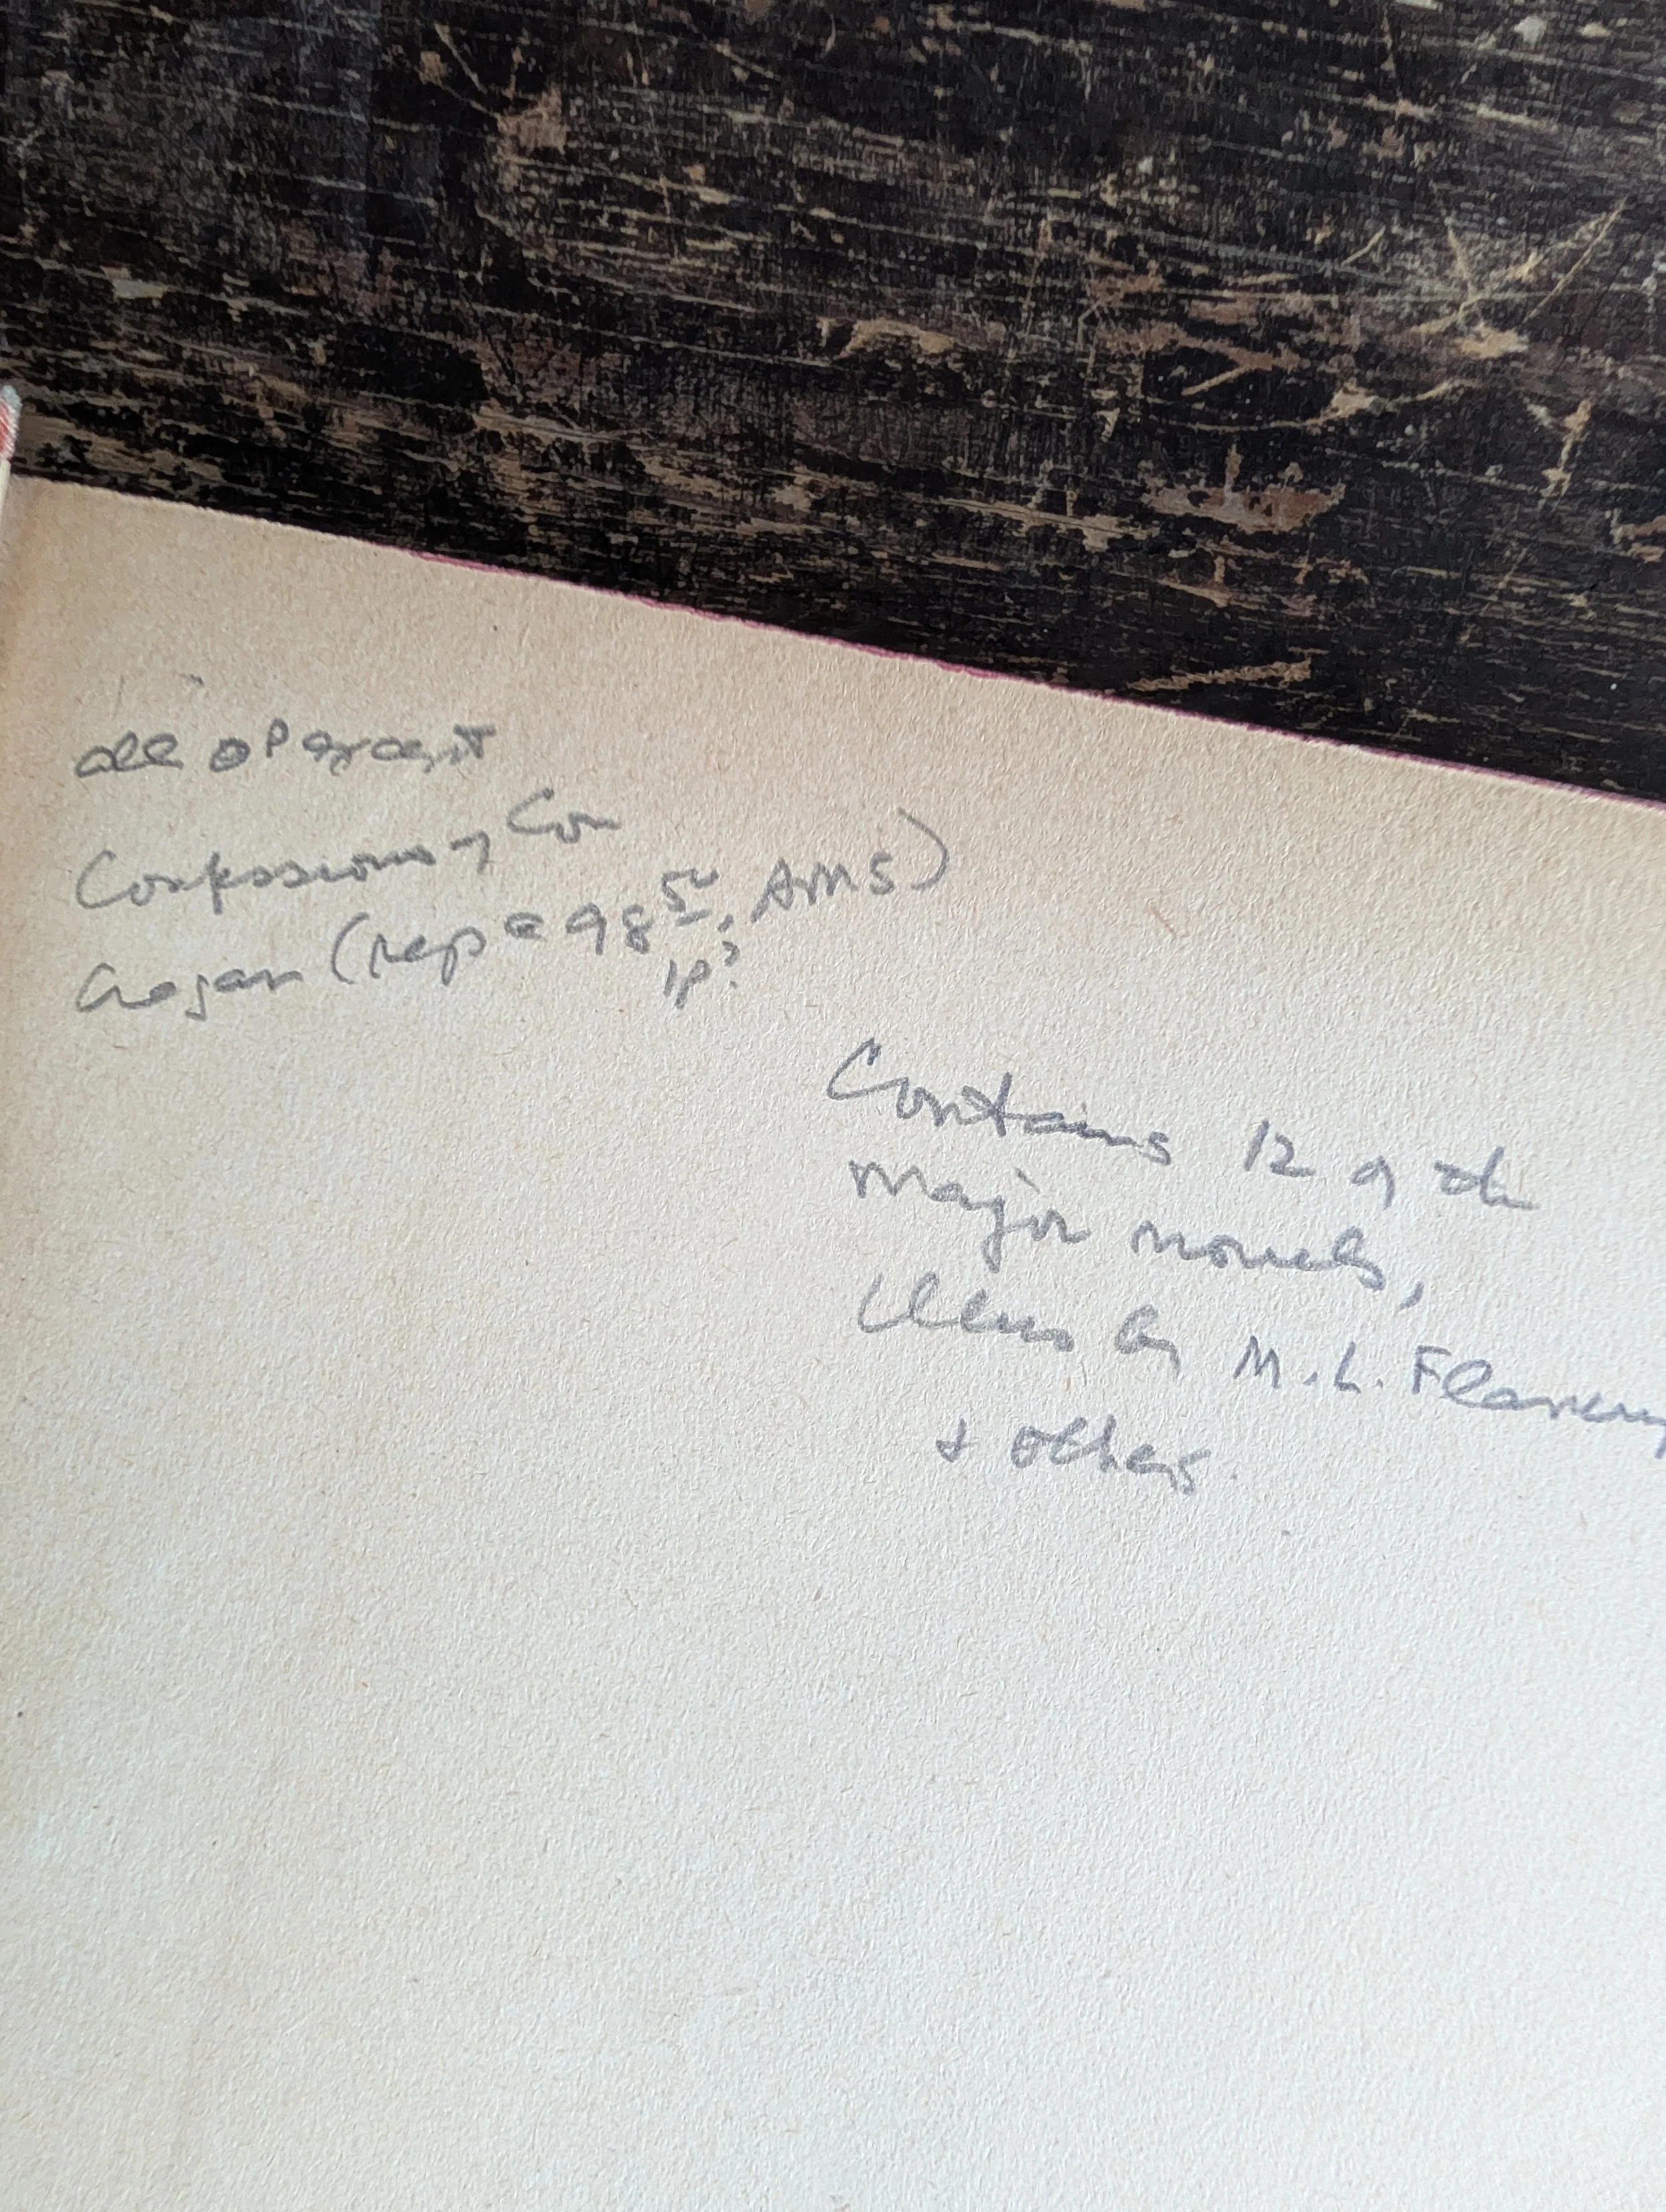 all OP except
Confessions of Con
Cregan (rep @ 98 50, AMS)
1p?
Contains 12 of the
major novels,
illus by M. L. Flanery
+ others.